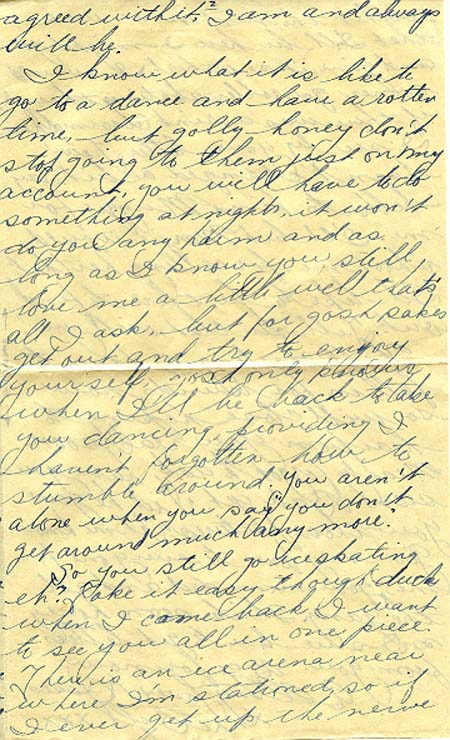 agreed with it? I am and always
will be.
I know what it is like to
go to a dance and have a rotten
time, but golly honey don't
stop going to them just on my
account, you will have to do
something at nights, it won't
do you any harm and as
long as I know you still
love me a little well that's
all I ask, but for gosh sakes
get out and try to enjoy
yourself, gosh only knows
when I'll be back to take
you dancing, providing I
haven't forgotten how to
stumble around. You aren't
alone when you say "you don't
get around much any more."
So you still go iceskating
eh? Take it easy though duck
when I come back I want
to see you all in one piece.
There is an ice arena near
where I'm stationed, so if
I ever get up the nerve